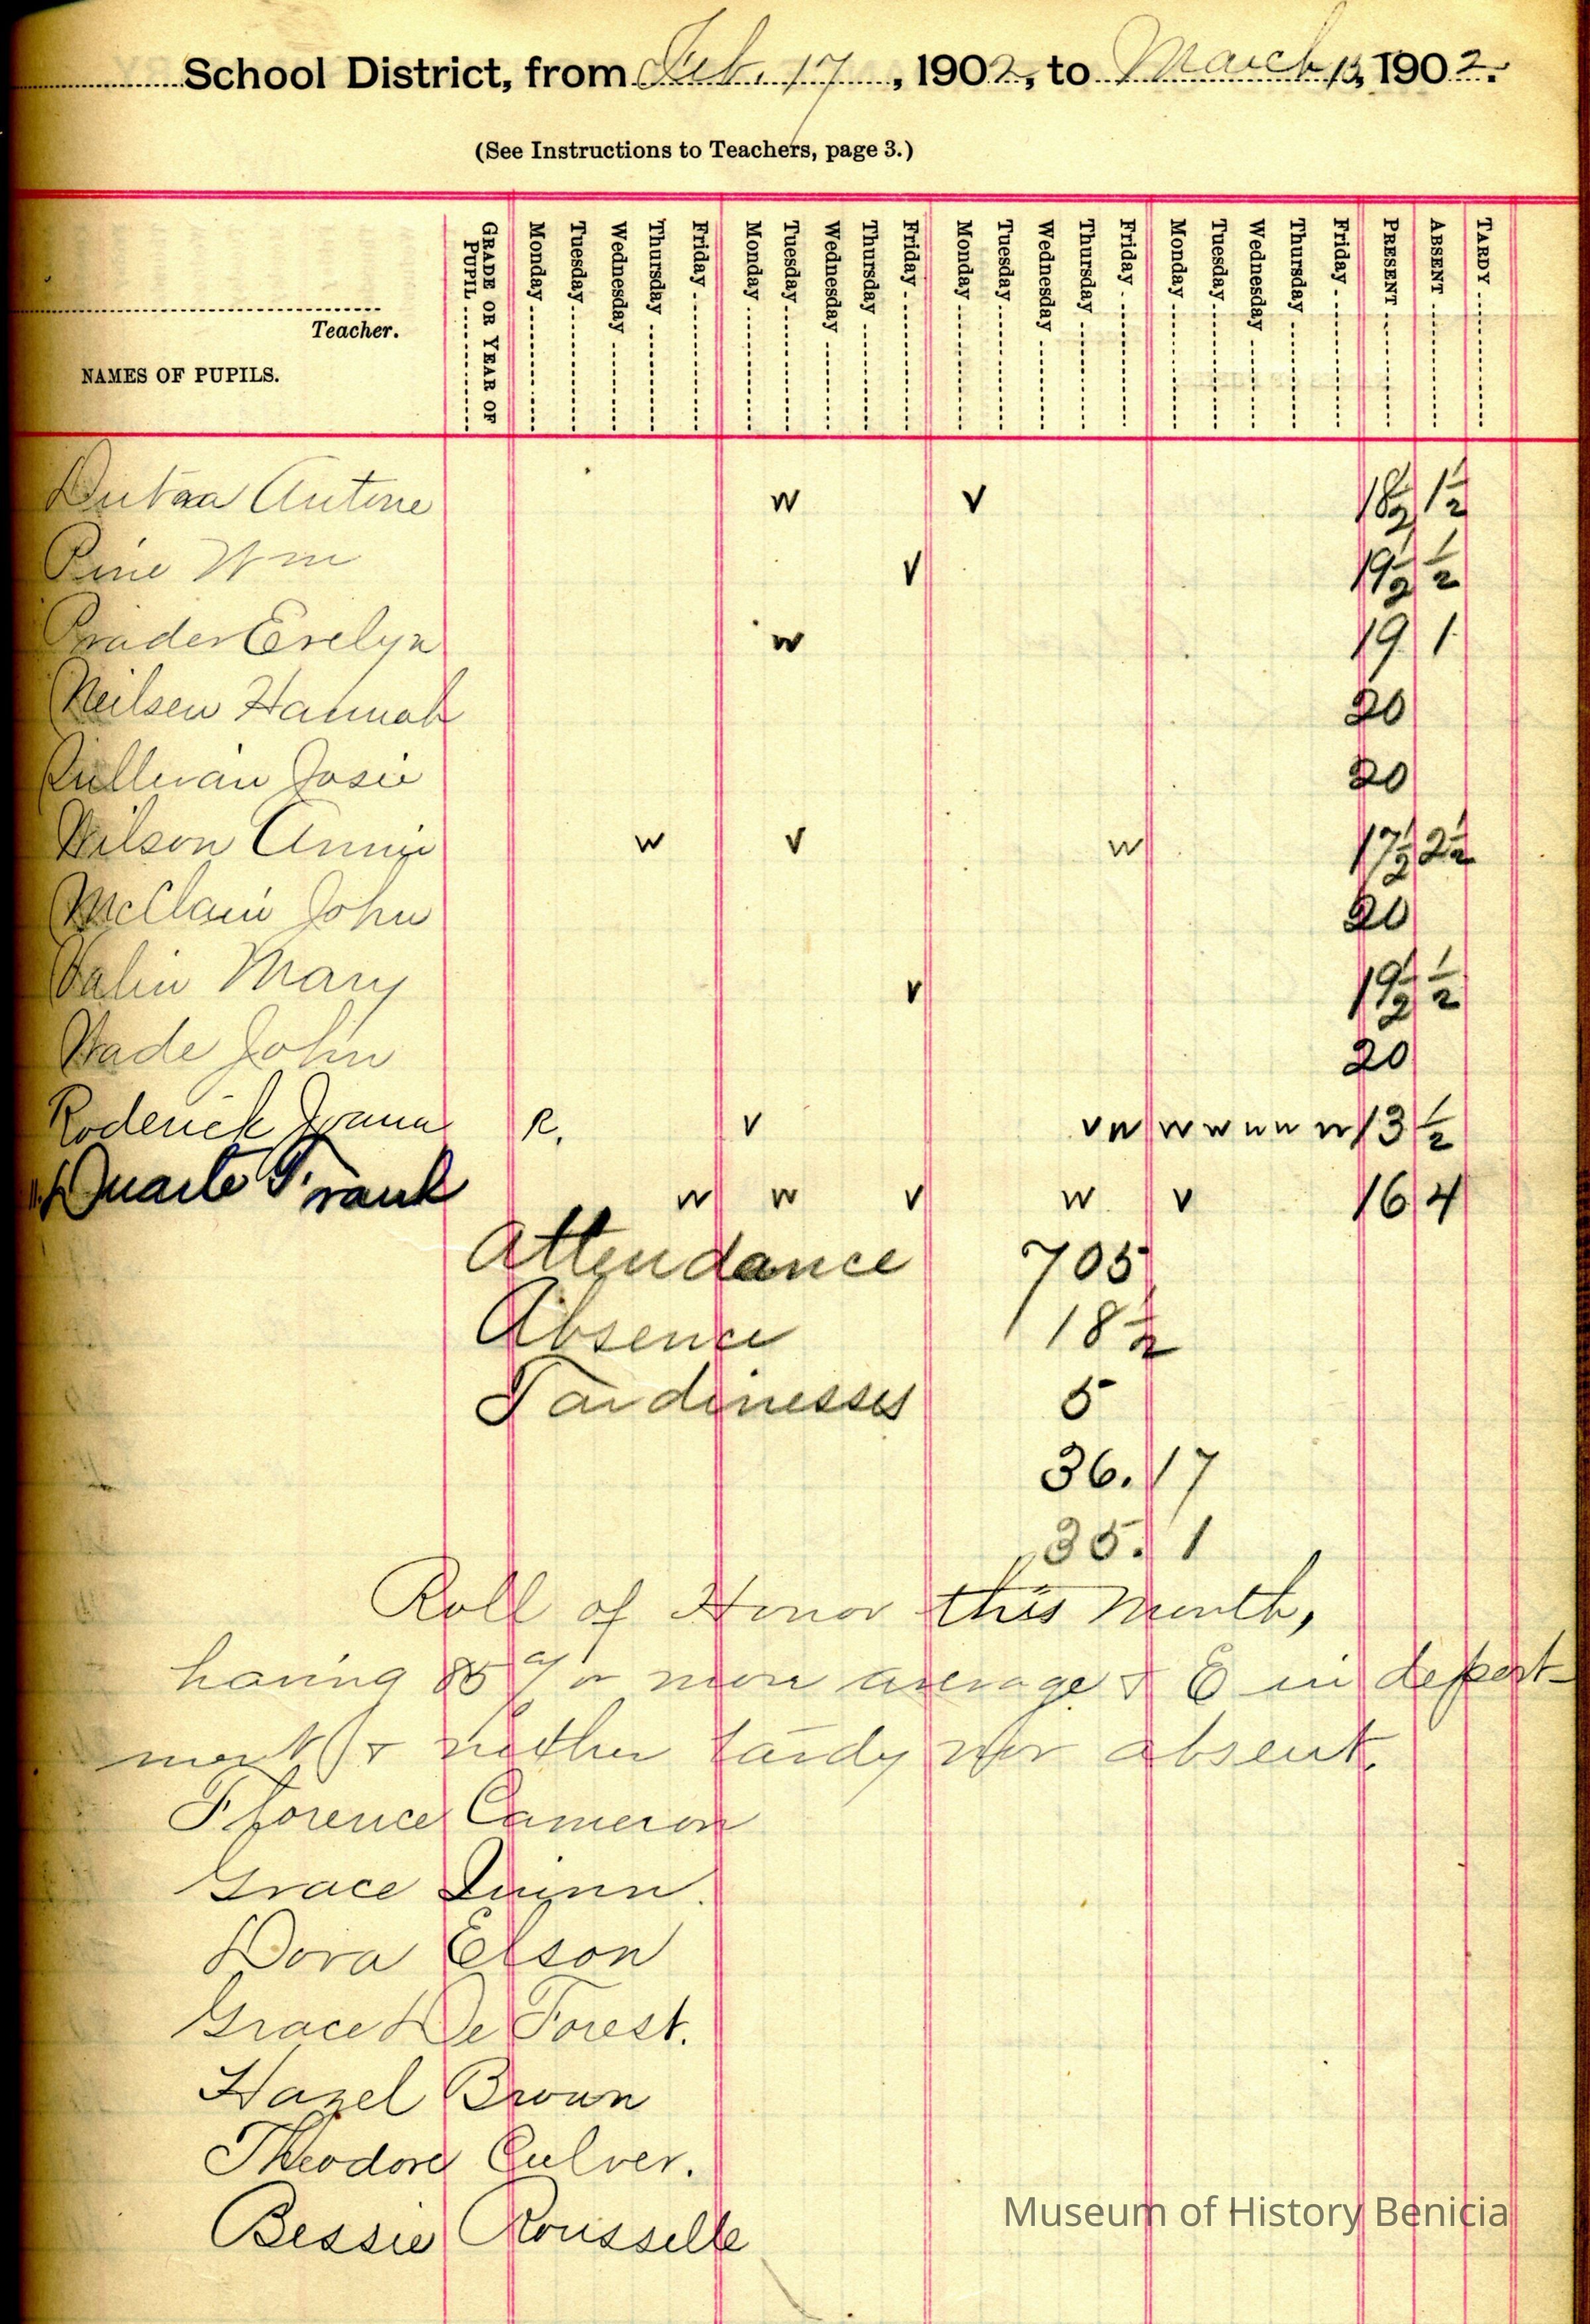 School District, from Feb. 17, 1902, to March 13, 1902.
(See Instructions to Teachers, page 3.)
Teacher.
NAMES OF PUPILS.
GRADE OR YEAR OF PUPIL
Monday Tuesday Wednesday Thursday Friday Monday Tuesday Wednesday Thursday Friday Monday Tuesday Wednesday Thursday Friday Monday Tuesday Wednesday Thursday Friday PRESENT ABSENT TARDY
Dutra Antone w v 18½ 1½
Pine Wm v 19½ ½
Prader Evelyn w 19 1
Neilsen Hannah 20
Sullivan Josie 20
Wilson Annie w v w 17½ 2½
McClain John 20
Mary v 19½ ½
Wade John 20
Roderick R. v v w w w w w w 13 ½
Duarte Frank w w v w v 16 4
Attendance 705
Absence 18½
Tardinesses 5
36.17
35.1
Roll of Honor this month,
having 85% or more average & E in deport-
ment & neither tardy nor absent.
Florence Cameron
Grace Quinn.
Dora Elson
Grace De Forest.
Hazel Brown
Theodore Culver.
Bessie Rousselle
Museum of History Benicia